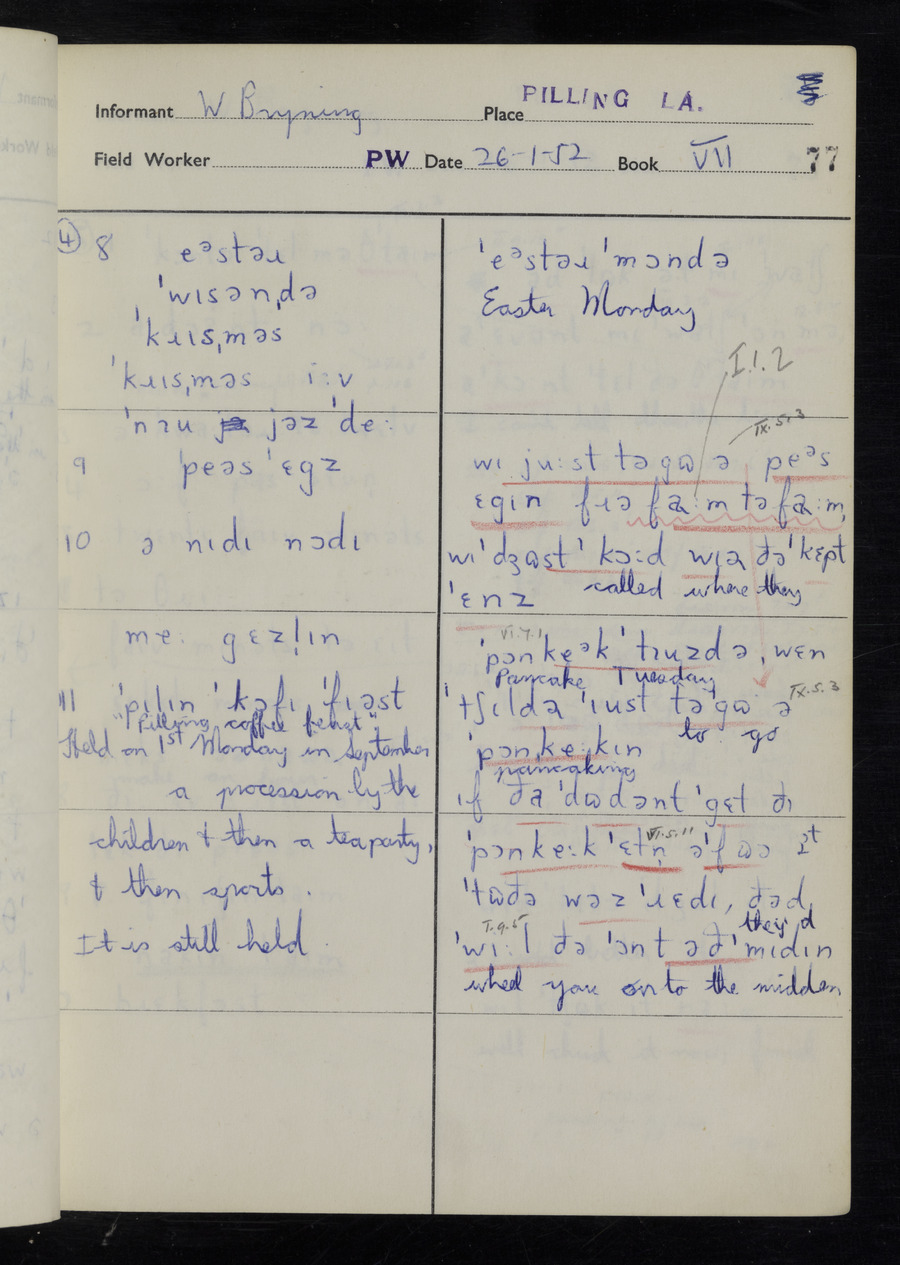 PILLING LA.
Informant W Bryning Place
Field Worker PW Date 26-1-52 Book VII 77
④ 8 eᵊstəɹ
ˈwɪsənˌdə
ˈkɹɪsˌməs
ˈkɹɪsˌməs i:v
ˈnɪu jəz ˈde:
9 ˈpeəs ˈɛgz
10 ə nɪdɪ nɔdɪ
me: gɛzlɪn
11 ˈpɪlɪn ˈkɔfɪ ˈfɪəst
"Pilling coffee feast"
Held on 1st Monday in September
a procession by the
children & then a tea party,
& then sports.
It is still held.
ˈeᵊstəɹ ˈmɔndə
Easter Monday
I.1.2
IX.5.3
wɪ ju:st tə gɷ ə peᵊs
ɛgɪn fɹə fa:m tə fa:m,
wɪ ˈdʒɷst ˈkɔ:d wɪə ðə ˈkɛpt
called where they
ˈɛnz
VI.7.1
ˈpɔnkeᵊk ˈtɪuzdə, wɛn
Pancake Tuesday
ˈtʃɪldə ˈɪust tə gɷ ə IX.5.3
to go
ˈpɔnˌke:kɪn
pancaking
ɪf ðə ˈdɷdənt ˈgɛt ðɪ
VI.5.11
ˈpɔnke:k ˈɛtn̩ əˈfɷə ðt
ˈtɷðə wəz ˈɹɛdɪ, ðəd
they'd
I.9.5
ˈwi:l ðə ˈɔnt əð ˈmɪdɪn
wheel you onto the midden